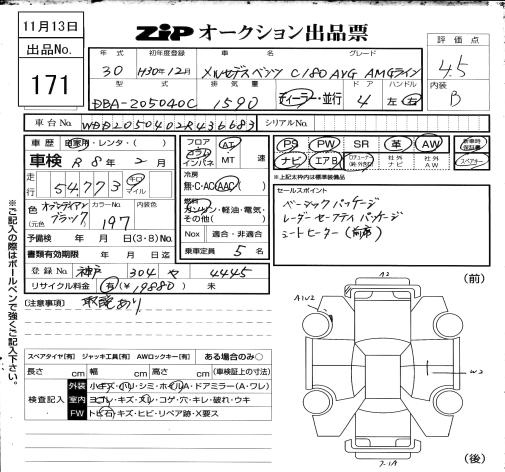 11月13日
出品No.
171
ZIP オークション出品票
評価点
4.5
内装
B
年式 初年度登録 車名 グレード
30 H30年12月 メルセデスベンツ C180 AVG AMGライン
型式 排気量 ドア ハンドル
DBA-205040C 1590 ディーラー・並行 4 左・右
車台No. WDD2050402R436683 シリアルNo.
車歴 自家用・レンタ・( )
車検 R 8年 2月
走行 54,773 キロ マイル
色 オブシディアンブラック カラーNo. 197 内装色
(元色 )
予備検 年 月 日(3・8)No.
書類有効期限 年 月 日迄
登録No. 神戸 304 や 4445
リサイクル料金 有(¥19880) 未
フロア コラム インパネ AT MT 速
冷房 無・C・AC・AAC
燃料 ガソリン・軽油・電気・その他( )
Nox 適合・非適合
乗車定員 5 名
PS PW SR 革 AW 新車時保証書
ナビ エアB 社外ナビ 社外AW スペアキー
※上記太枠内は標準装備品
セールスポイント
ベーシックパッケージ
レーダーセーフティパッケージ
シートヒーター(前席)
注意事項 取説あり
※ご記入の際はボールペンで強くご記入下さい。
スペアタイヤ【有】 ジャッキ工具【有】 AWロックキー【有】 ある場合のみ○
長さ cm 幅 cm 高さ cm (車検証上の寸法)
検査記入
外装 小キズ・ハリ・シミ・ホイルA・ドアミラー(A・ワレ)
室内 ヨゴレ・キズ・スレ・コゲ・穴・キレ・破れ・ウキ
FW トビ石・キズ・ヒビ・リペア跡・X要ス
(前)
A2
A1U2
W2
(後)